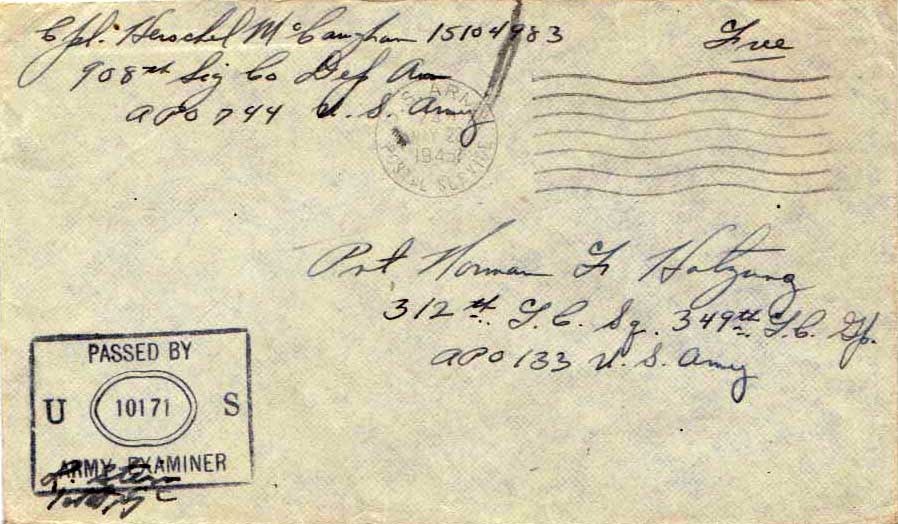 Cpl. Herschel McCaughan 15104983
908th Sig Co Dep Avn
APO 744 U. S. Army
Free
U.S. ARMY
MAY
1945
POSTAL SERVICE
Pvt Norman F. Holzung
312th T. C. Sq. 349th T. C. Gp.
APO 133 U. S. Army
PASSED BY
U 10171 S
ARMY EXAMINER